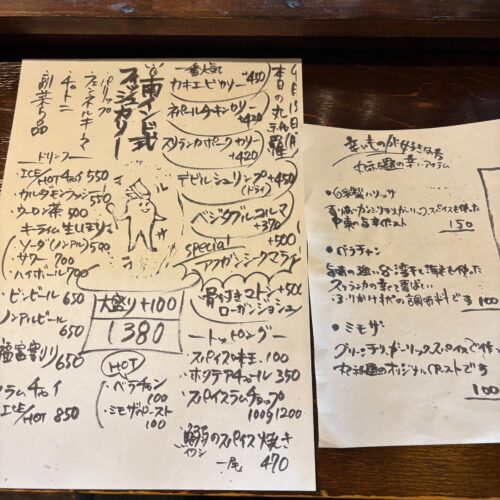 9月13日(月)
本日の丸祇羅
一番人気
カキエビカリー +450
ネパールチキンカリー +420
スリランカポークカリー +420
デビルシュリンプ(ドライ) +450
ベジタブルコルマ +370
special +500
アフガンシークマライ
骨付きマトン +500
ローガンジョシュ
南インド式
フィッシュカリー
パリップ
フェンネルキーマ
チャトニ
副菜5品
大盛り+100
1380
HOT
・ベラチャン 100
・ミモザペースト 100
トッピング
スパイス味玉 100
ホタテアチャール 350
スパイスラムチョップ 100g 1200
鰯のスパイス焼き
イワシ
一尾 470
ドリンク
・ICE/HOT チャイ 550
・カルダモンラッシー 550
・ウーロン茶 500
・キーライム生しぼり
ソーダ(ノンアル) 590
サワー 700
・ハイボール 700
・ビンビール 650
ノンアルビール 650
650
ラムチャイ
ICE/HOT 850
辛いものが好きな方
丸祇羅の辛いアイテム
・自家製ハリッサ
150
・バラチャン
スリランカの辛くて香ばしい
ふりかけ状の調味料です 100
・ミモザ
グリーンチリ、ガーリック、スパイスで作った
丸祇羅のオリジナルペーストです
100